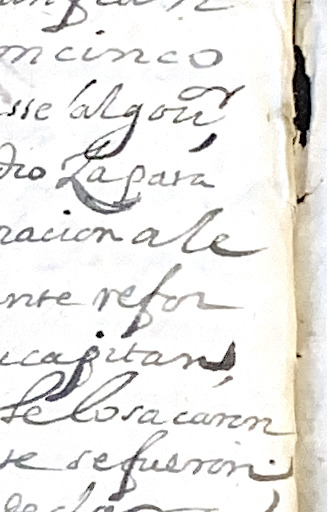 ncinco
sse algou^r
dio Lapara
nacion ale
nte refor
capitan,
se losacaron
te sefueron